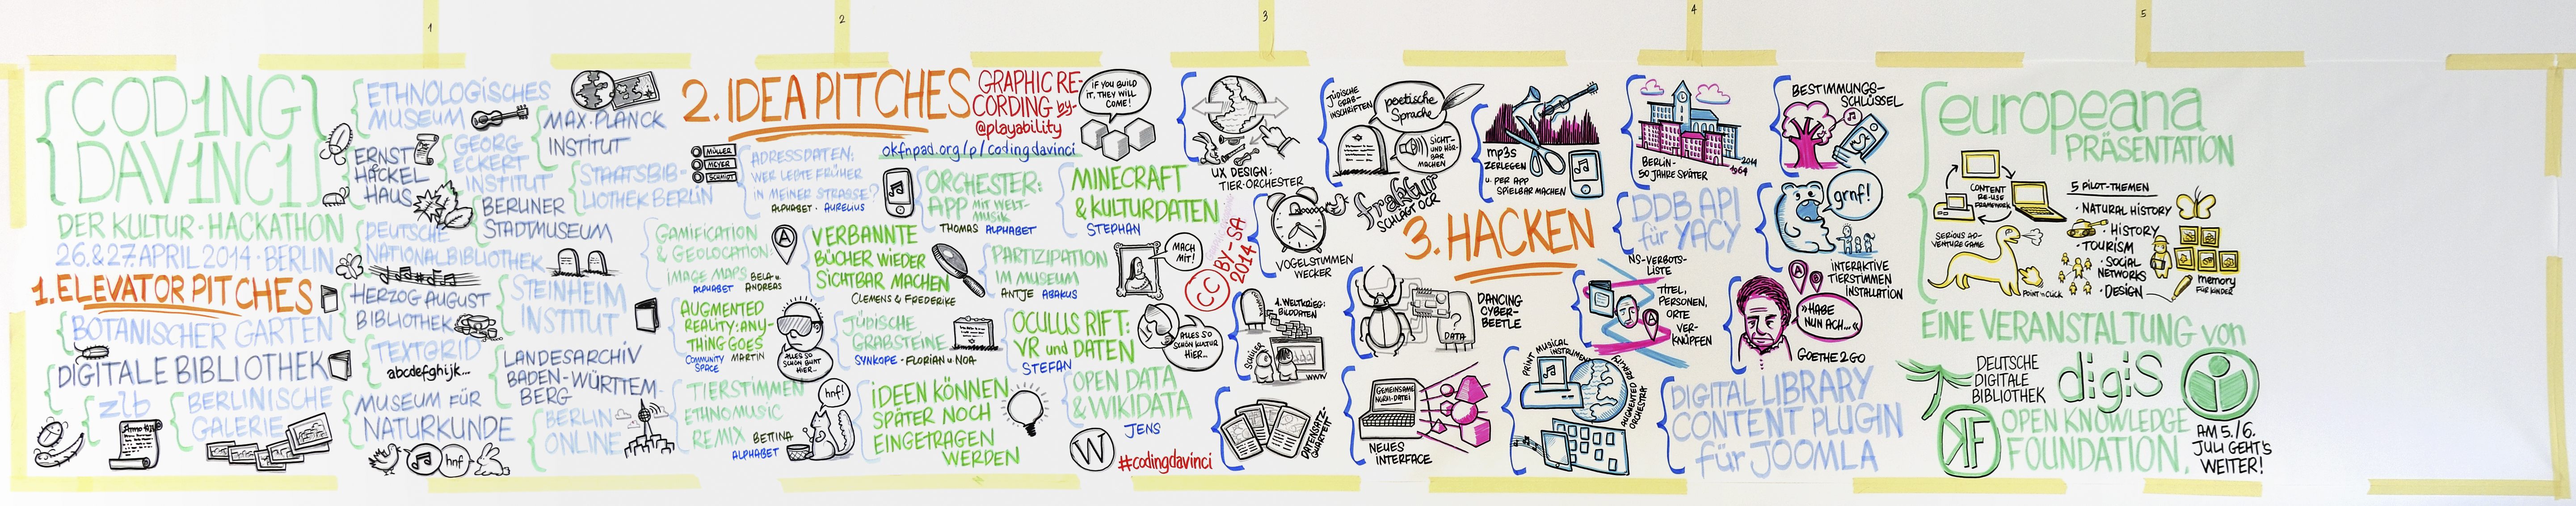 1
2
3
4
5
{COD1NG
DAV1NC1}
DER KULTUR-HACKATHON
26.&27.APRIL 2014·BERLIN
1.ELEVATOR PITCHES
BOTANISCHER GARTEN
DIGITALE BIBLIOTHEK
zlb
Anno
BERLINISCHE
GALERIE
ETHNOLOGISCHES
MUSEUM
MAX-PLANCK
INSTITUT
ERNST
HÄCKEL
HAUS
GEORG
ECKERT
INSTITUT
STAATSBIB-
LIOTHEK BERLIN
BERLINER
STADTMUSEUM
DEUTSCHE
NATIONALBIBLIOTHEK
HERZOG AUGUST
BIBLIOTHEK
STEINHEIM
INSTITUT
TEXTGRID
abcdefghijk...
LANDESARCHIV
BADEN-WÜRTTEM-
BERG
MUSEUM FÜR
NATURKUNDE
hnf
BERLIN
ONLINE
2. IDEA PITCHES
GRAPHIC RE-
CORDING by-
@playability
IF YOU BUILD
IT, THEY WILL
COME!
okfnpad.org/p/codingdavinci
MÜLLER
MEYER
SCHMIDT
ADRESSDATEN:
WER LEBTE FRÜHER
IN MEINER STRASSE?
ALPHABET · AURELIUS
ORCHESTER:
APP MIT WELT-
MUSIK
THOMAS ALPHABET
MINECRAFT
& KULTURDATEN
STEPHAN
GAMIFICATION
& GEOLOCATION:
IMAGE MAPS
ALPHABET
BELA u.
ANDREAS
A
VERBANNTE
BÜCHER WIEDER
SICHTBAR MACHEN
CLEMENS & FREDERIKE
PARTIZIPATION
IM MUSEUM
ANTJE ABAKUS
MACH
MIT!
AUGMENTED
REALITY: ANY-
THING GOES
COMMUNITY
SPACE
MARTIN
ALLES SO
SCHÖN BUNT
HIER...
JÜDISCHE
GRABSTEINE
SYNKOPE · FLORIAN u. NOA
OCULUS RIFT:
VR und DATEN
STEFAN
ALLES SO
SCHÖN KULTUR
HIER...
TIERSTIMMEN
ETHNOMUSIC
REMIX
BETTINA
ALPHABET
hnf!
IDEEN KÖNNEN
SPÄTER NOCH
EINGETRAGEN
WERDEN
OPEN DATA
& WIKIDATA
JENS
W
#codingdavinci
CC BY-SA
2014
UX DESIGN:
TIER-ORCHESTER
JÜDISCHE
GRAB-
INSCHRIFTEN
poetische
Sprache
SICHT-
UND HÖR-
BAR
MACHEN
mp3s
ZERLEGEN
u. PER APP
SPIELBAR MACHEN
BERLIN-
50 JAHRE SPÄTER
2014
1964
BESTIMMUNGS-
SCHLÜSSEL
VOGELSTIMMEN
WECKER
fraktur
SCHLÄGT OCR
3. HACKEN
DDB API
für YACY
grnf!
INTERAKTIVE
TIERSTIMMEN
INSTALLATION
1. WELTKRIEG:
BILDDATEN
SCHÜLER
WWW
DATA
?
DANCING
CYBER-
BEETLE
NS-VERBOTS-
LISTE
TITEL,
PERSONEN,
ORTE
VER-
KNÜPFEN
A
A
B
»HABE
NUN ACH...«
GOETHE 2 GO
DATENSATZ-
QUARTETT
GEMEINSAME
NORM-DATEI
NEUES
INTERFACE
PRINT MUSICAL
INSTRUMENTS
AUGMENTED REALITY
ORCHESTRA
DIGITAL LIBRARY
CONTENT PLUGIN
für JOOMLA
europeana
PRÄSENTATION
CONTENT
RE-USE
FRAMEWORK
SERIOUS AD-
VENTURE GAME
POINT'N CLICK
5 PILOT-THEMEN
·NATURAL HISTORY
·HISTORY
·TOURISM
·SOCIAL
NETWORKS
·DESIGN
memory
FÜR KINDER
EINE VERANSTALTUNG von
DEUTSCHE
DIGITALE
BIBLIOTHEK
digiS
OPEN KNOWLEDGE
FOUNDATION.
AM 5./6.
JULI GEHT'S
WEITER!